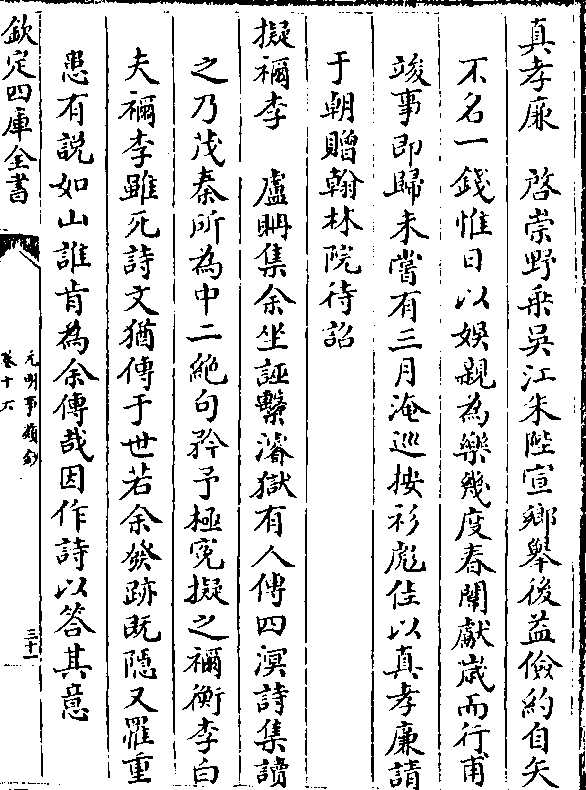 真孝廉　啓崇野乗吳江朱陛宣鄉舉後益儉約自矢
不名一錢惟日以娛親為樂幾度春闈獻嵗而行甫
竣事即歸未嘗有三月淹巡按祁彪佳以真孝廉請
于朝贈翰林院待詔
擬禰李　盧柟集余坐誣繫濬獄有人傳四溟詩集讀
之乃茂秦所為中二絶句矜予極寃擬之禰衡李白
夫禰李雖死詩文猶傳于世若余發跡既隠又罹重
患有説如山誰肯為余傳哉因作詩以答其意
欽定四庫全書
元明事類鈔
卷十六
三十一